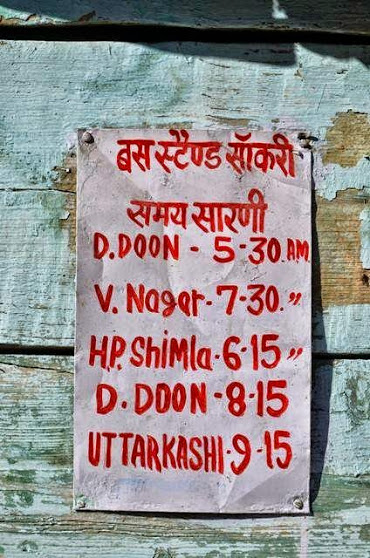 बस स्टैण्ड सॉकरी
समय सारणी
D.DOON - 5-30.A.M.
V. Nagar-7-30.〃
H.P. Shimla-6-15〃
D. DOON-8-15
UTTARKASHI-9-15